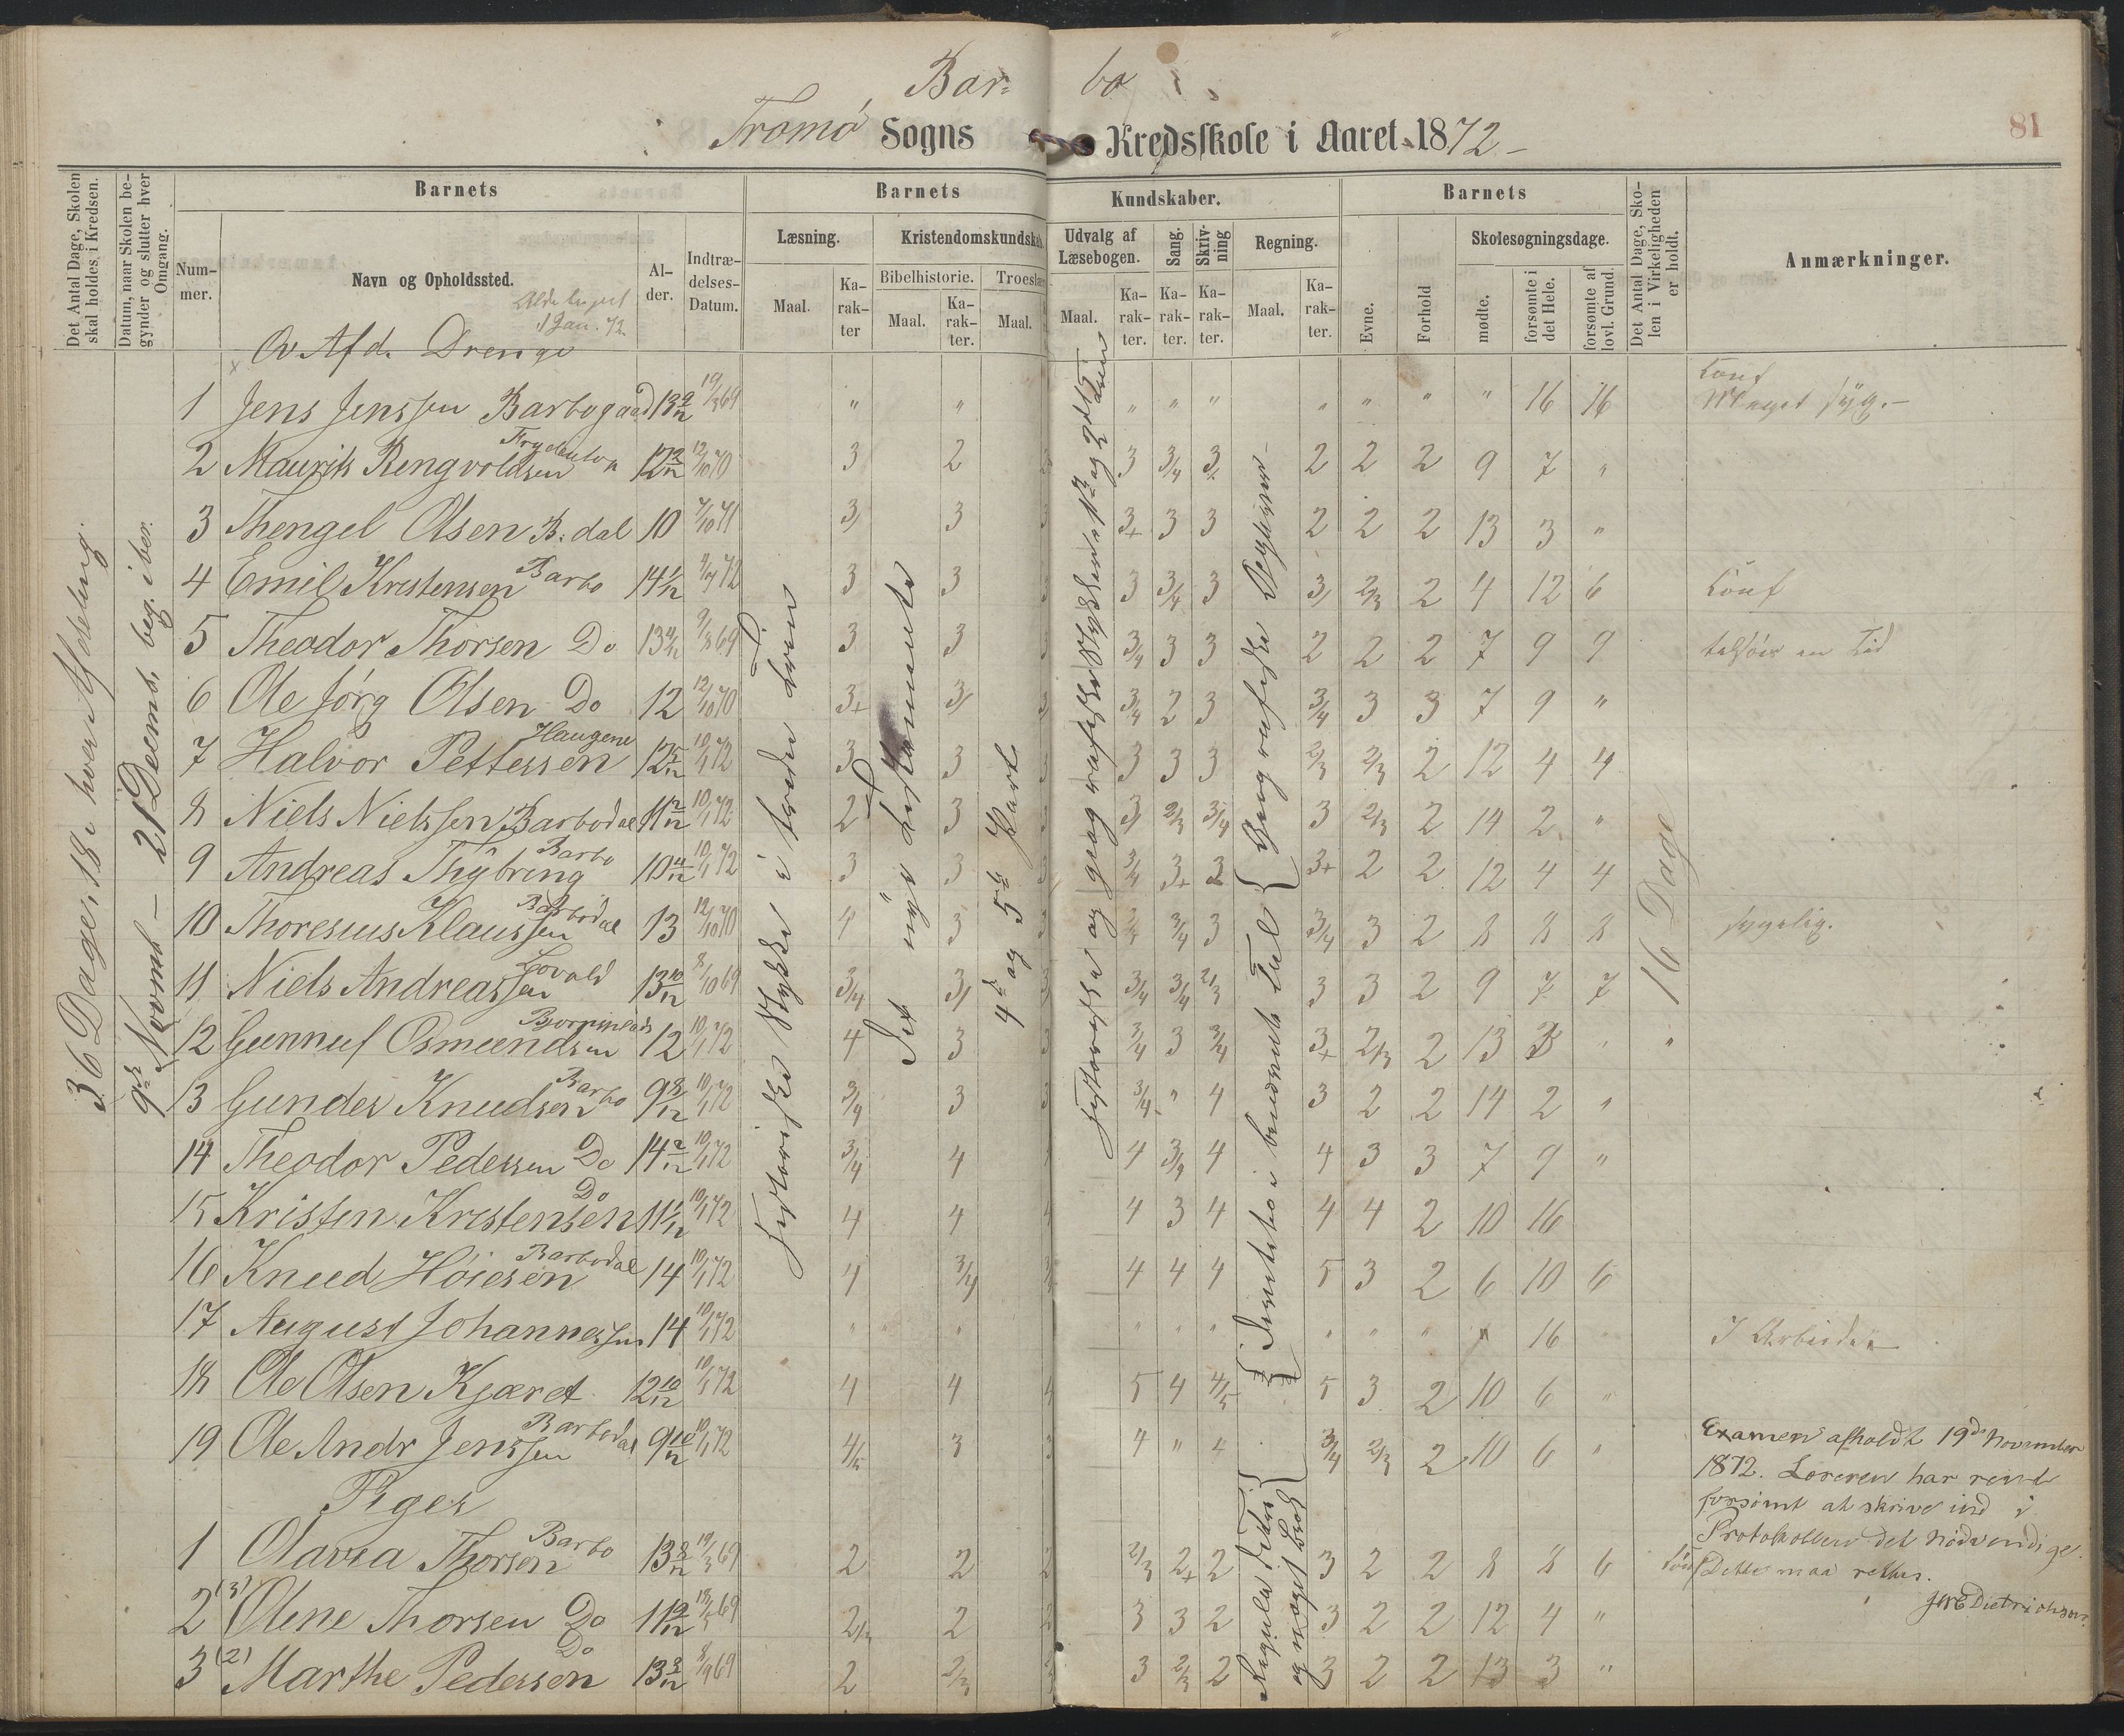 Bar= bo
Tromø Sogns Kredsskole i Aaret 1872
81
Det Antal Dage, Skolen skal holdes i Kredsen.
Datum, naar Skolen begynder og slutter hver Omgang.
Barnets
Nummer.
Navn og Opholdssted.
Alder.
Indtrædelses-Datum.
Barnets Kundskaber.
Læsning.
Maal.
Karakter
Kristendomskundskab.
Bibelhistorie.
Maal.
Karakter.
Troeslære
Maal.
Udvalg af Læsebogen.
Maal.
Karakter.
Sang.
Karakter.
Skrivning
Karakter.
Regning.
Maal.
Karakter.
Barnets
Evne.
Forhold
Skolesøgningsdage.
mødte.
forsømte i det Hele.
forsømte af lovl. Grund.
Det Antal Dage, Skolen i Virkeligheden er holdt.
Anmærkninger.
1 Jan. 72
Øv Afd. Drenge
36 Dage, 18 i hver Afdeling.
21 Decemb. beg. i ber.
16 Dage
1 Jens Jenssen Barbogaard 13 9/12 19/3 69 " " " " " " " " " 16 16 Konf Meget syg.
2 Mauritz Rengvoldsen 12 2/12 12/10 70 3 2 3 3/4 3 2 2 2 9 7 "
3 Thengel Olsen B.dal 10 7/10 71 3 3 3+ 3 3 2 2 2 13 3 "
4 Emil Kristensen Barbo 14 1/12 72 3 3 3 3/4 3 3 2/3 2 4 12 6 Konf
5 Theodor Thorsen Do 13 69 3 3 3/4 3 3 2 2 2 7 9 9 en Tid
6 Ole Jörg Olsen Do 12 12/10 70 3+ 3 3/4 2 3 3/4 3 3 7 9 "
7 Halvor Pettersen Haugene 12 5/12 10/1 72 3 3 3 3 3 2/3 2/3 2 12 4 4
8 Niels Nielssen Barbodal 11 2/12 10/1 72 2 3 3 2/3 3/4 3 2/3 2 14 2 "
9 Andreas Thÿbring Barbo 10 4/12 10/1 72 3 3 3/4 3+ 3 3+ 2 2 12 4 4
10 Thoresius Klaussen Barbodal 13 12/10 70 4 3 3/4 3 3/4 3 2 8 8 8 sygelig.
11 Niels Andreassen Lovold 13 10/12 8/10 69 3/4 3 3/4 3/4 2/3 3 3 2 9 7 7
12 Gunnuf Osmundsen 12 10/1 72 4 3 3/4 3 3/4 3+ 2/3 2 13 3 "
13 Gunder Knudsen Barbo 9 8/12 10/1 72 3/4 3 3/4 " 4 3 2 2 14 2 "
14 Theodor Pedersen Do 14 2/12 10/1 72 3/4 4 4 3/4 4 4 3 3 7 9 "
15 Kristen Kristensen Do 11 1/12 10/1 72 4 4 4 3 4 4 4 2 10 16
16 Knud Höiesen Barbodal 14 10/1 72 4 3/4 4 4 4 5 3 2 6 10 6
17 August Johannessen 14 10/1 72 " " " " " " " " " 16 I Arbeide
18 Ole Olsen Kjæret 12 10/12 10/1 72 4 4 5 4 4/5 5 3 2 10 6 "
19 Ole Andr Jenssen Barbodal 9 10/12 10/1 72 4/5 3 4 " 4 3/4 2/3 2 10 6 "
Piger
1 Olava Thorsen Barbo 13 8/12 19/3 69 2 2 2/3 2+ 2 3 2 2 8 8 6
2 (3) Olene Thorsen Do 11 69 2 3 3 2 3 2 2 12 4 "
3 (2) Marthe Pedersen Do 13 3/12 69 2 2/3 3 2/3 2 3 2 2 13 3 "
Historiske Stykker i tredie
Det nye Testamente
4de og 5te Part
Historiske og geografiske Stykker
benævnte Tal
Regula de tri
og noget Brøk
Examen afholdt 19d November
1872. Læreren har rent
forsömt at skrive ind i
Protokollen det Nödvendige.
Dette maa rettes.